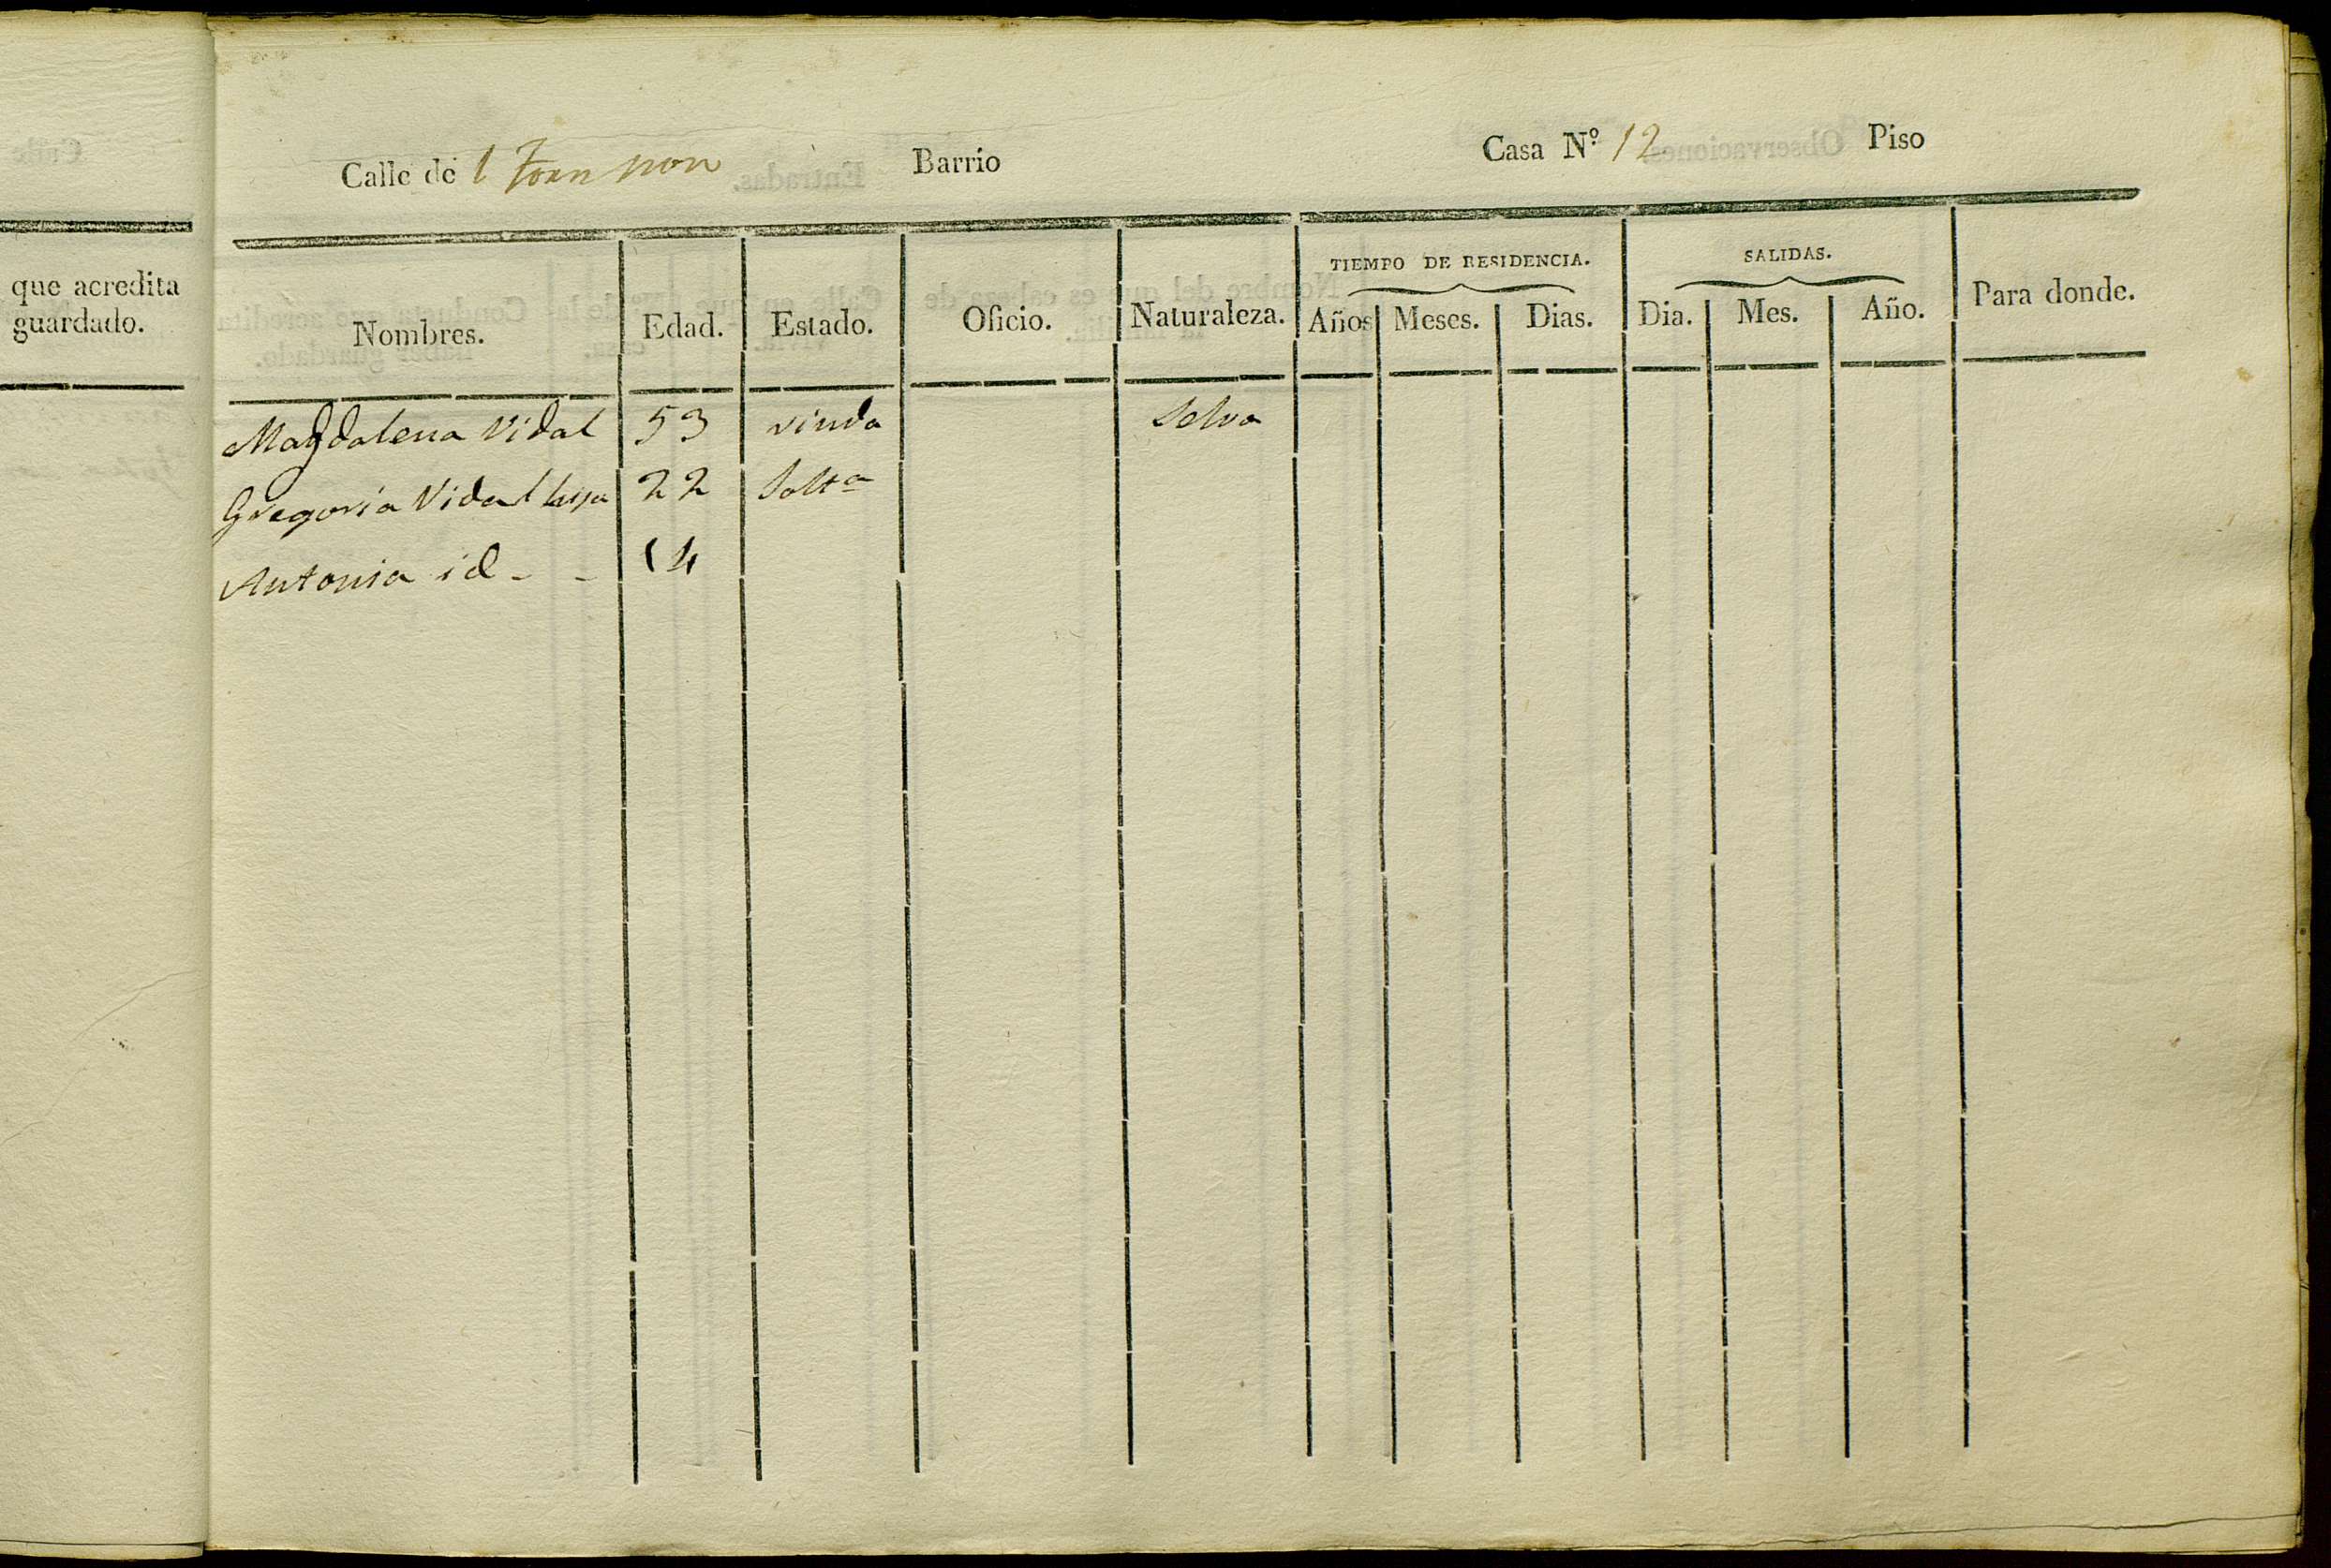 que acredita
guardado.
Calle de l Forn nou Barrio Casa N.º 12 Piso
Nombres. Edad. Estado. Oficio. Naturaleza. TIEMPO DE RESIDENCIA. Años Meses. Dias. SALIDAS. Dia. Mes. Año. Para donde.
Magdalena Vidal 53 viuda Selva
Gregoria Vidal hija 22 Solt.a
Antonia id - - 14